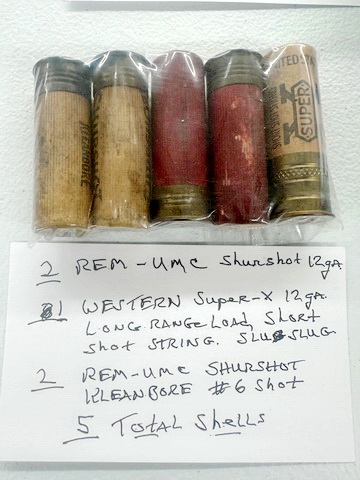 KLEANBORE
UNITED STA
X
SUPER
2 REM-UMC Shurshot 12ga
1 WESTERN Super-X 12ga.
LONG RANGE LOAD, SHORT
Shot STRING. SLUG SLUG
2 REM-UMC SHURSHOT
KLEANBORE #6 Shot
5 TOTAL Shells